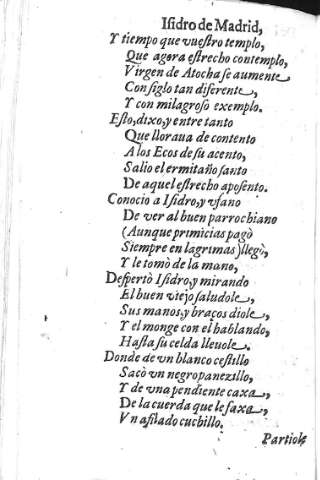 Iſidro de Madrid,
Y tiempo que vueſtro templo,
Que agora eſtrecho contemplo,
Virgen de Atocha ſe aumente,
Con ſiglo tan diferente,
Y con milagroſo exemplo.
Eſto, dixo, y entre tanto
Que lloraua de contento
A los Ecos de ſu acento,
Salio el ermitaño ſanto
De aquel eſtrecho apoſento.
Conocio a Iſidro, y vfano
De ver al buen parrochiano
(Aunque primicias pagò
Siempre en lagrimas) llegò,
Y le tomò de la mano,
Deſpertò Iſidro, y mirando
El buen viejo ſaludole,
Sus manos, y braços diole,
Y el monge con el hablando,
Haſta ſu celda lleuole.
Donde de vn blanco ceſtillo
Sacò vn negro panezillo,
Y de vna pendiente caxa,
De la cuerda que le faxa,
Vn afilado cuchillo.
Partiole